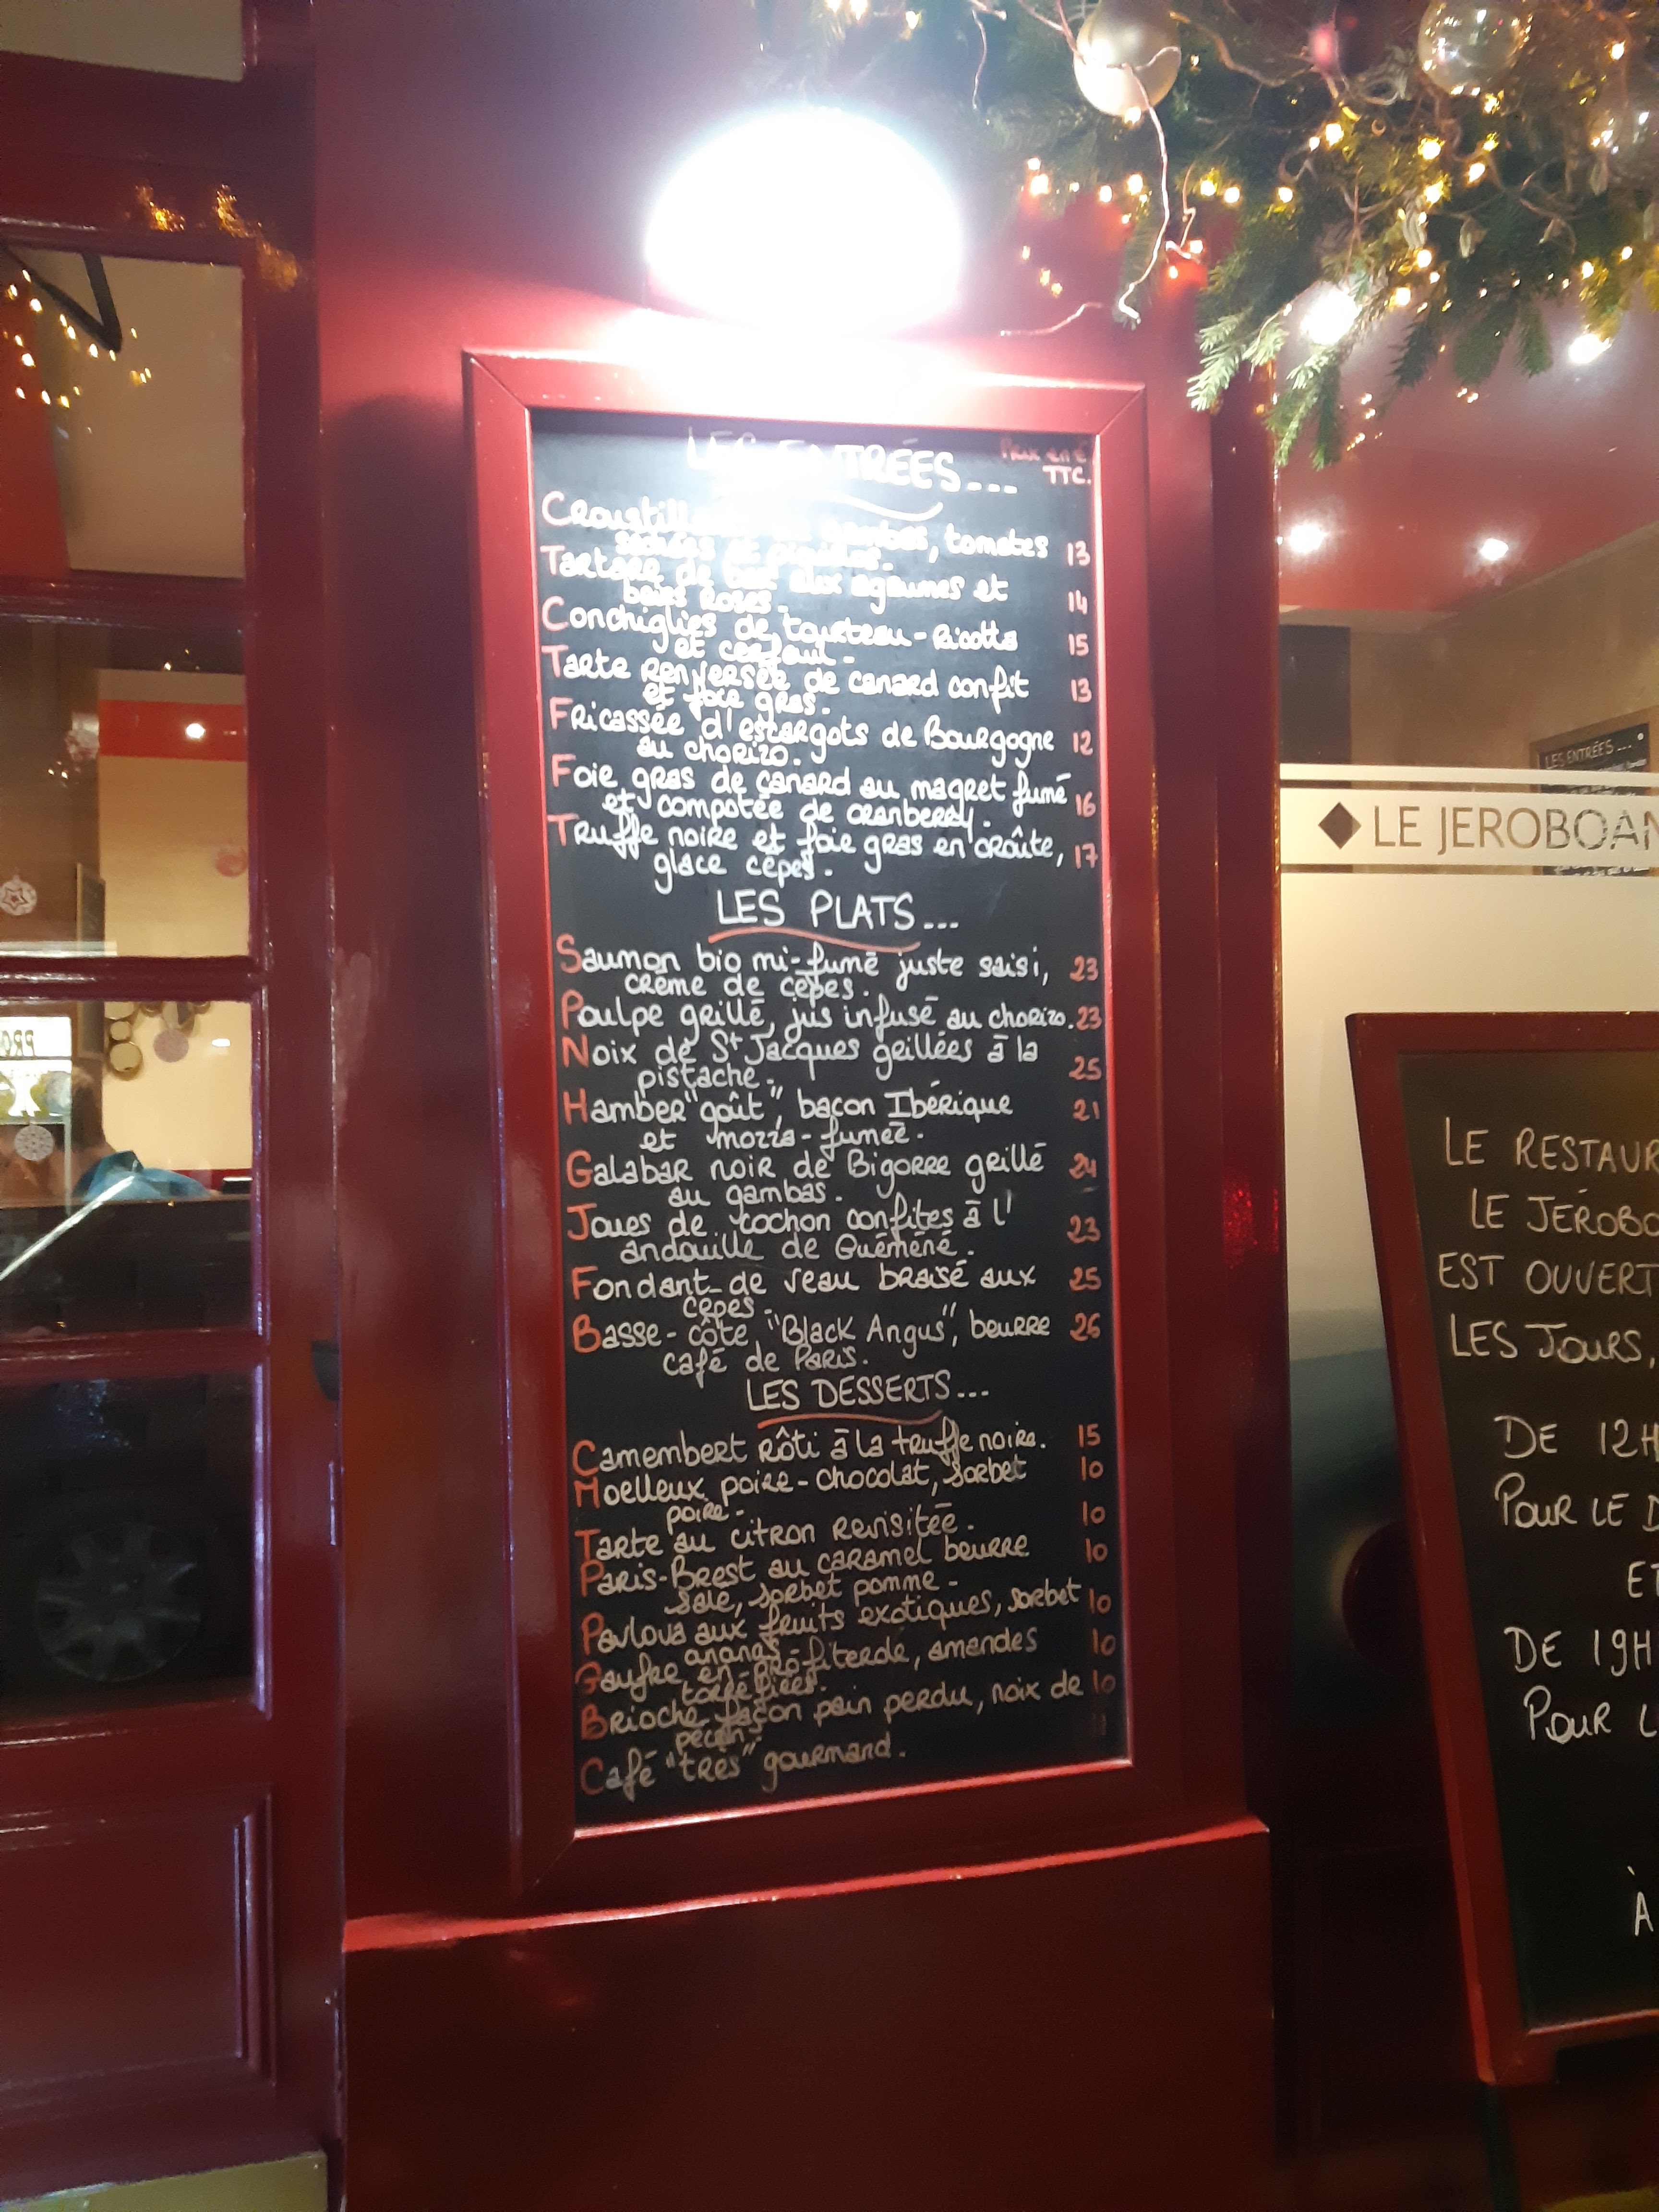 LES ENTRÉES...
Prix en €
TTC.
gambas, tomates 13
séchées et pignons.
Tartare de aux agrumes et 14
baies roses.
Conchiglies de tourteau-Ricotta 15
et cerfeuil.
Tarte renversée de canard confit 13
et foie gras.
Fricassée d'escargots de Bourgogne 12
au chorizo.
Foie gras de canard au magret fumé 16
et compotée de cranberry.
Truffe noire et foie gras en croûte, 17
glace cèpes.
LES PLATS...
Saumon bio mi-fumé juste saisi, 23
crème de cèpes.
Poulpe grillé, jus infusé au chorizo. 23
Noix de St Jacques grillées à la 25
pistache.
Hamber"goût", bacon Ibérique 21
et mozza-fumée.
Galabar noir de Bigorre grillé 24
au gambas.
Joues de cochon confites à l' 23
andouille de Guéméné.
Fondant de veau braisé aux 25
cèpes.
Basse-côte "Black Angus", beurre 26
café de Paris.
LES DESSERTS...
Camembert rôti à la truffe noire. 15
Moelleux poire-chocolat, sorbet 10
poire.
Tarte au citron revisitée. 10
Paris-Brest au caramel beurre 10
salé, sorbet pomme.
Pavlova aux fruits exotiques, sorbet 10
ananas.
Gaufre en profiterole, amandes 10
torréfiées.
Brioche façon pain perdu, noix de 10
pécan.
Café "très" gourmand. 11
LES ENTRÉES...
LE JEROBOAM
LE RESTAUR
LE JÉROBO
EST OUVERT
LES JOURS,
DE 12H
POUR LE D
ET
DE 19H
POUR L
À